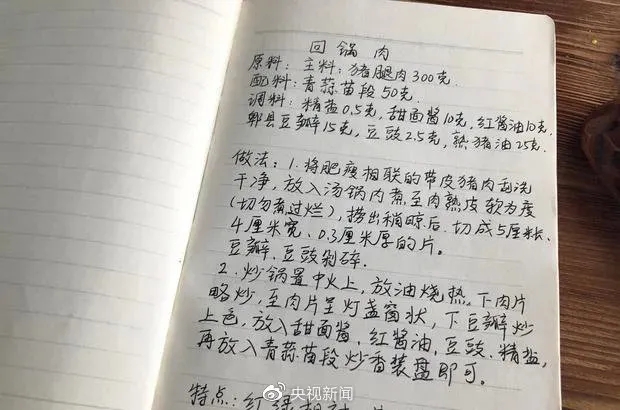 回锅肉
原料：主料：猪腿肉300克.
配料：青蒜苗段50克.
调料：精盐0.5克，甜面酱10克，红酱油10克.
郫县豆瓣15克，豆豉2.5克，熟猪油25克.
做法：1.将肥瘦相联的带皮猪肉刮洗
干净，放入汤锅内煮至肉熟皮软为度
(切勿煮过烂)，捞出稍晾后，切成5厘米长、
4厘米宽、0.3厘米厚的片。
豆瓣、豆豉剁碎.
2.炒锅置中火上，放油烧热，下肉片
略炒，至肉片呈灯盏窝状，下豆瓣炒
上色，放入甜面酱、红酱油、豆豉、精盐，
再放入青蒜苗段炒香装盘即可。
特点：红绿相
央视新闻